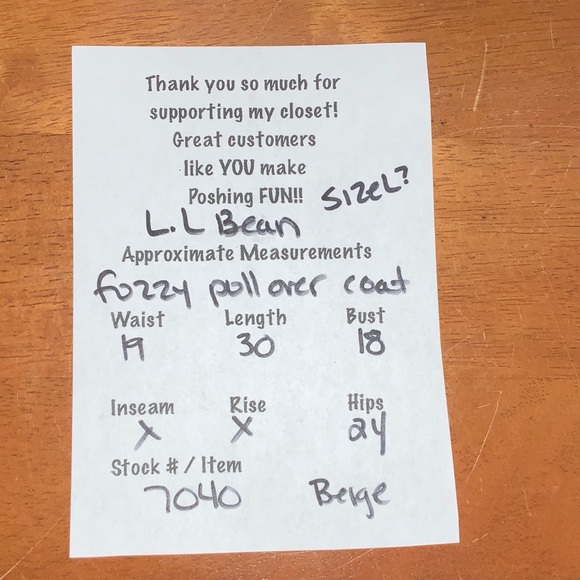 Thank you so much for
supporting my closet!
Great customers
like YOU make
Poshing FUN!!
SIZE L?
L.L Bean
Approximate Measurements
fuzzy pull over coat
Waist Length Bust
19 30 18
Inseam Rise Hips
X X 24
Stock # / Item
7040 Beige